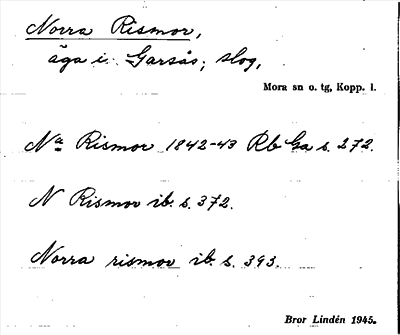 Norra Rismor,
äga i Garsås; slog,
Mora sn o. tg, Kopp. l.
Na Rismor 1842-43 Rb Ga s. 272.
N Rismor ib. s. 372.
Norra rismor ib. s. 393.
Bror Lindén 1945.